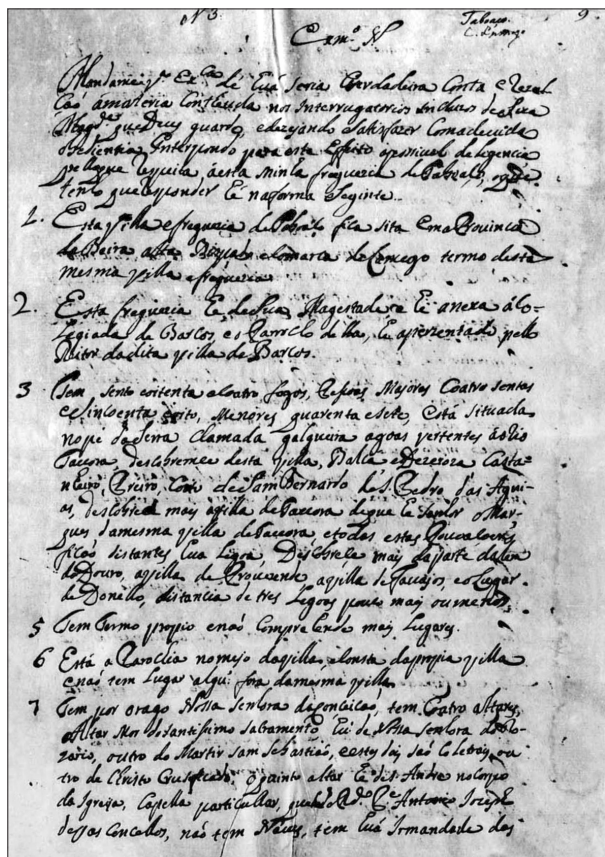 nº 3
Taboaço
C. Lamego
9
Exmº Sr
Mandame V. Exª. dê huã seria verdadeira Conta e
a materia Conteuda nos Interrogatorios inclusos de Sua
Magde. que Deus guarde, e dezejando Satisfazer Com a devida
obediencia, Interpondo para este effeito a possivel deligencia
pello que respeita, a esta minha freguezia de Taboaço, o que
tenho que responder hé na forma Seginte.
1. Esta villa e freguezia de Taboaço fica sita em a Provincia
da Beira alta Bispado e Comarca de Lamego termo desta
mesma villa e freguezia.
2. Esta freguezia hé de Sua Magestade e hé anexa á Co-
legiada de Barcos, e o Parrocho della, hé aprezentado pello
Reitor da dita villa de Barcos.
3 Tem, sento e oitenta e coatro fogos, Pesoas Mayores, Coatro sentas
e sincoenta e oito, Menores quarenta e sete, está situada
no pe da Serra chamada galgueira agoas vertentes ao Rio
Tavora descobremce desta villa, Valla Casta-
nheiro, Ereiro, Conv. de Sam Bernardo de S. Pedro das Agui-
as, descobrece mais a villa de Tavora de que hé Senhor o Mar-
ques, da mesma villa de Tavora, e todas estas Povoacoens
ficão distantes hua legoa, Descobrece mais da parte dalem
do Douro, a villa de Provezende, a villa de Favaios, e o Lugar
de Donello, distancia de tres Legoas pouco mais ou menos.
5 Tem Termo propio e naõ Comprehende mais Lugares.
6 Está a Parochia no meyo da villa, e consta da propia villa
e naõ tem Lugar algu fora da mesma villa.
7 Tem por orago Nossa Senhora da Conceicaõ, tem Coatro altares,
Altar Mor do santissimo sacramento, hú de Nossa Senhora do Ro-
zario, outro do Martir Sam Sebastiaõ, e estes dois saõ Colatrais, ou-
tro de Christo Crusificado, o quinto altar hé de S. Andre no Corpo
da Igreja, Capella particullar, que hé do Rdo. Pe. Antonio Joseph
de Vasconcellos, naõ tem Naves, tem huã Irmandade das